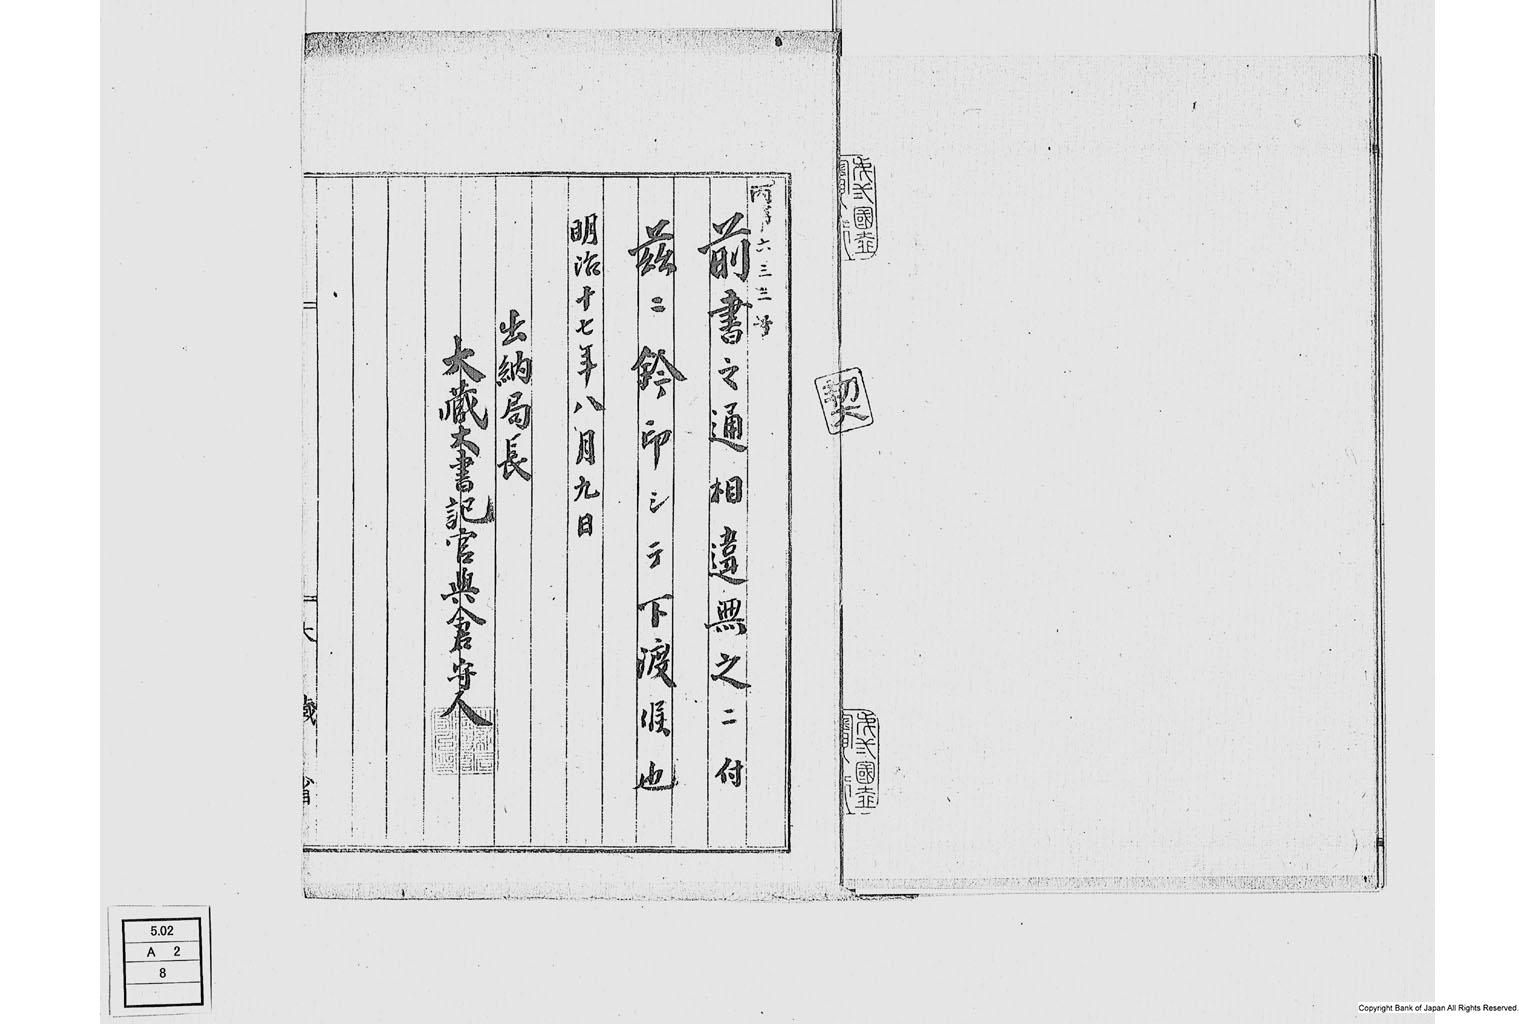 丙第六三三号
前書之通相違無之ニ付
茲ニ鈐印シテ下渡候也
明治十七年八月九日
出納局長
大蔵大書記官與倉守人
契
大蔵省
5.02
A 2
8
Copyright Bank of Japan All Rights Reserved.